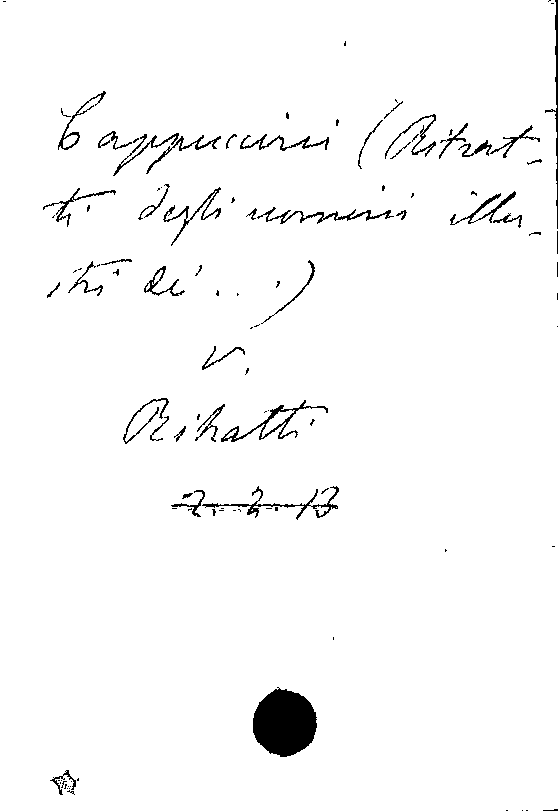 Cappuccini (Ritrat-
ti degli uomini illu-
stri dei ...)
v.
Ritratti
2. 2. 13